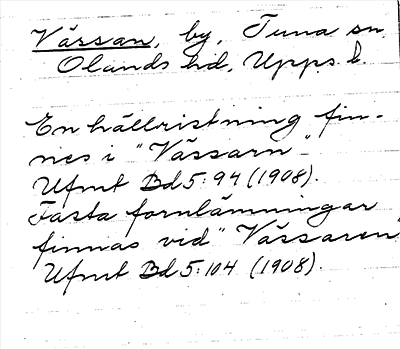 Vässan, by, Tuna sn,
Olands hd, Upps. l.
En hällristning fin-
nes i "Vässarn".
Ufmt Bd 5:94 (1908).
Fasta fornlämningar
finnas vid "Vässaren"
Ufmt Bd 5:104 (1908).